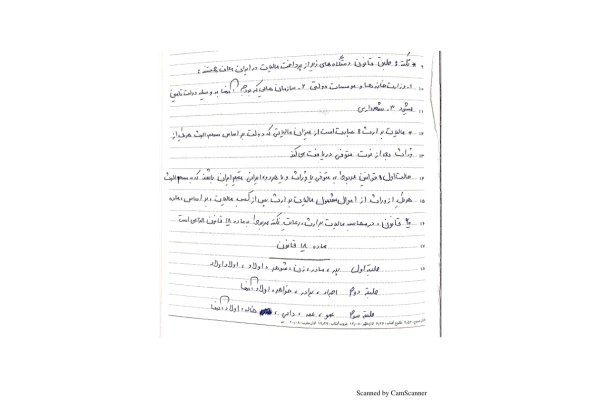 * نکته: طبق قانون دستگاه های زیر از پرداخت مالیات در ایران معاف هستند: ۹
۱. وزارتخانه ها و موسسات دولتی ۲- سازمان هایی که بودجه آنها به وسیله دولت تامین ۱۰
میشود ۳- شهرداری ۱۱
* مالیات بر ارث: عبارت است از میزان مالیاتی که دولت بر اساس سهم الارث هر یک از ۱۲
وراث بعد از فوت متوفی دریافت می کند ۱۳
حالت اول: قوانین مربوط به متوفی یا وراث و یا هر دو ایرانی مقیم ایران باشند که به سهم الارث ۱۴
هر یک از وراث از اموال مشمول مالیات بر ارث پس از کسب مالیات بر اساس ماده ۱۵
۲۰ قانون، در محاسبه مالیات بر ارث رعایت نکته مربوط به ماده ۱۸ قانون الزامی است ۱۶
ماده ۱۸ قانون ۱۷
طبقه اول پدر، مادر، زن، شوهر، اولاد، اولاد اولاد ۱۸
طبقه دوم اجداد، برادر، خواهر، اولاد آنها
طبقه سوم عمو، عمه، دایی، خاله، اولاد آنها
Scanned by CamScanner